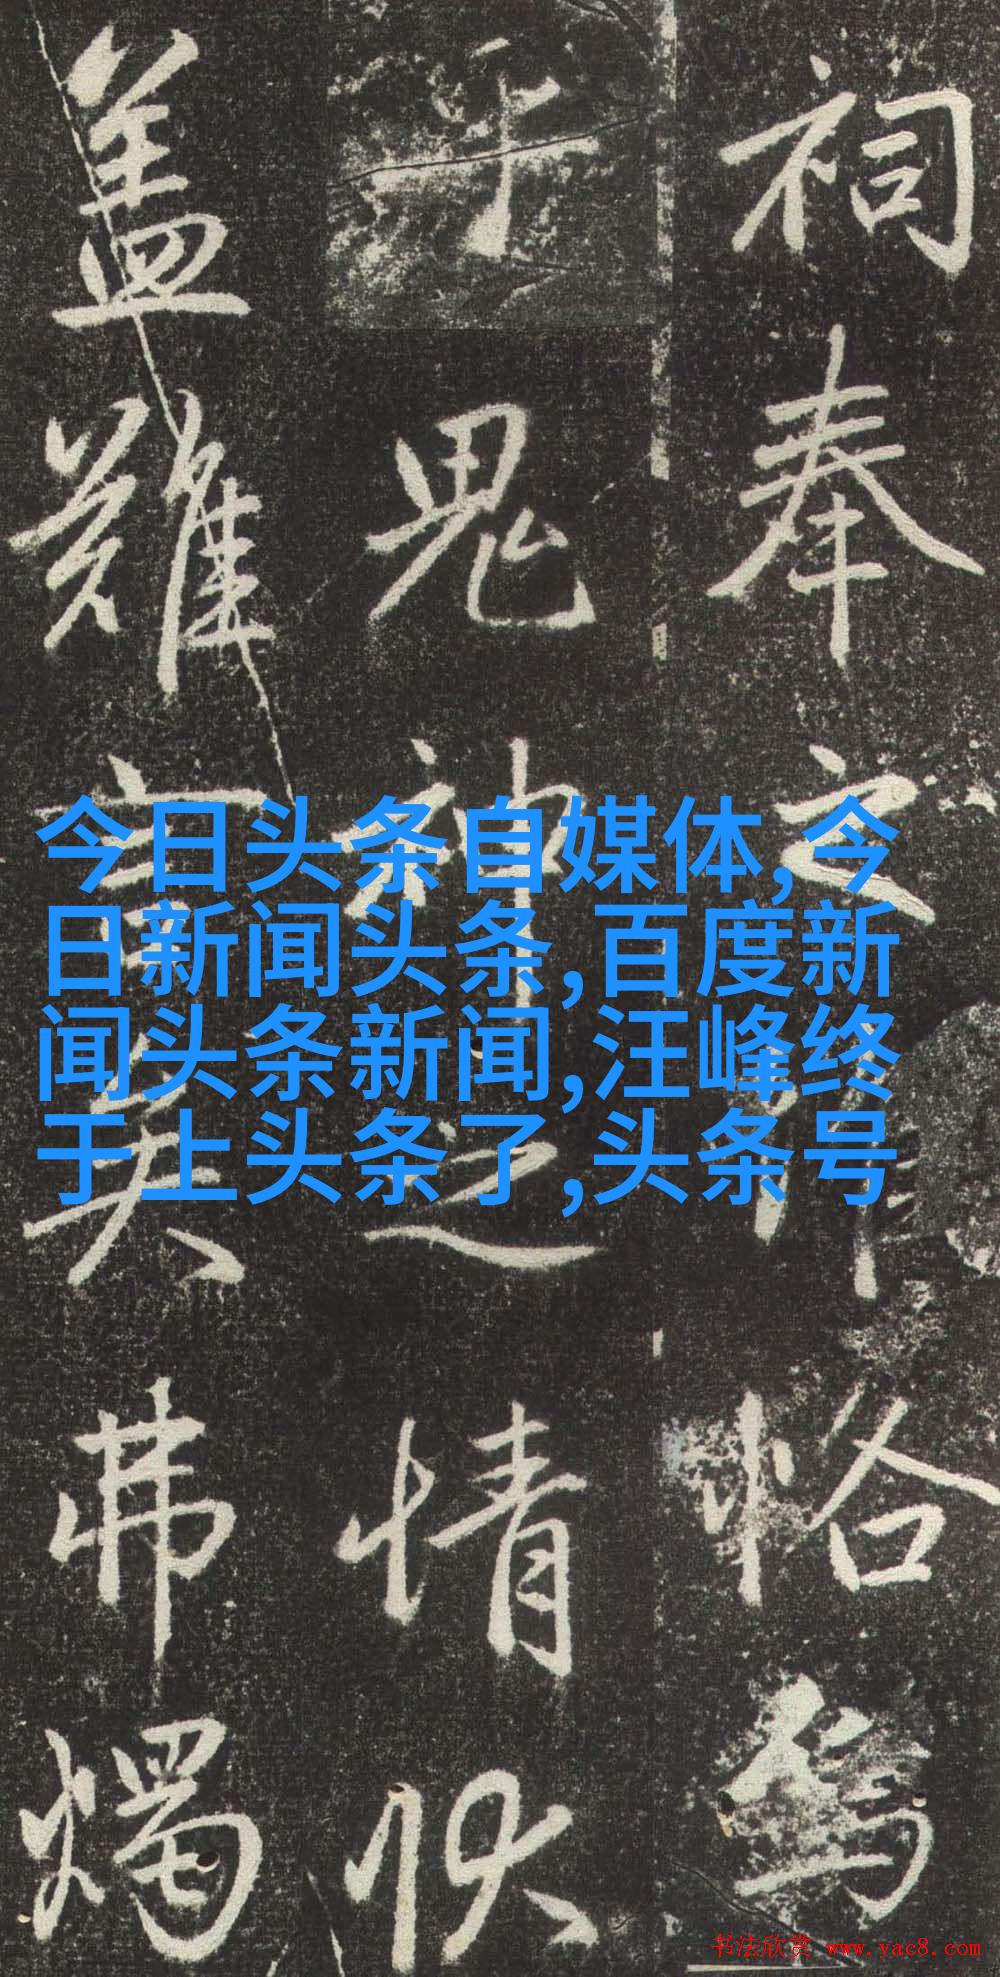 祠奉之恪
于鬼神之情状
盖難言矣弗燭
今日头条自媒体,今
日新闻头条,百度新
闻头条新闻,汪峰终
于上头条了,头条号
书法欣赏 www.yac8.com